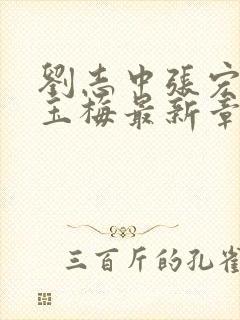 劉志中張宏
玉梅最新章
三百斤的孔雀